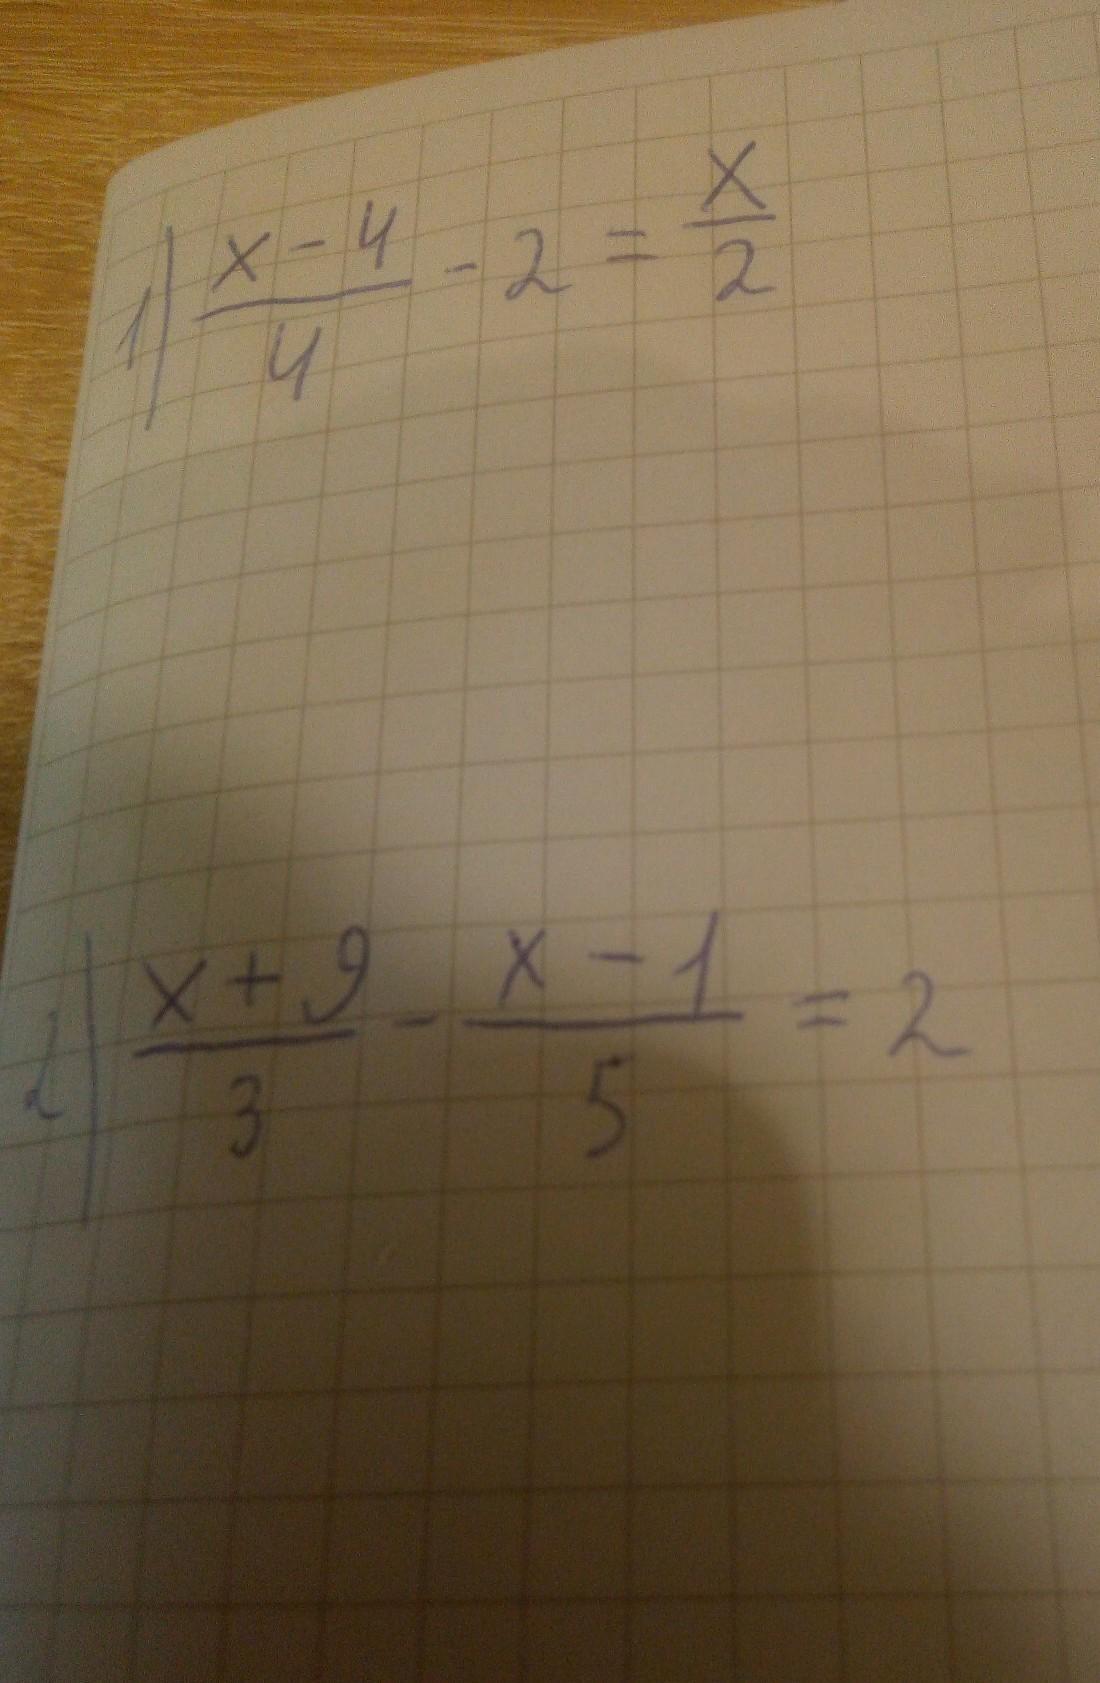 1) (x-4)/4 - 2 = x/2
2) (x+9)/3 - (x-1)/5 = 2